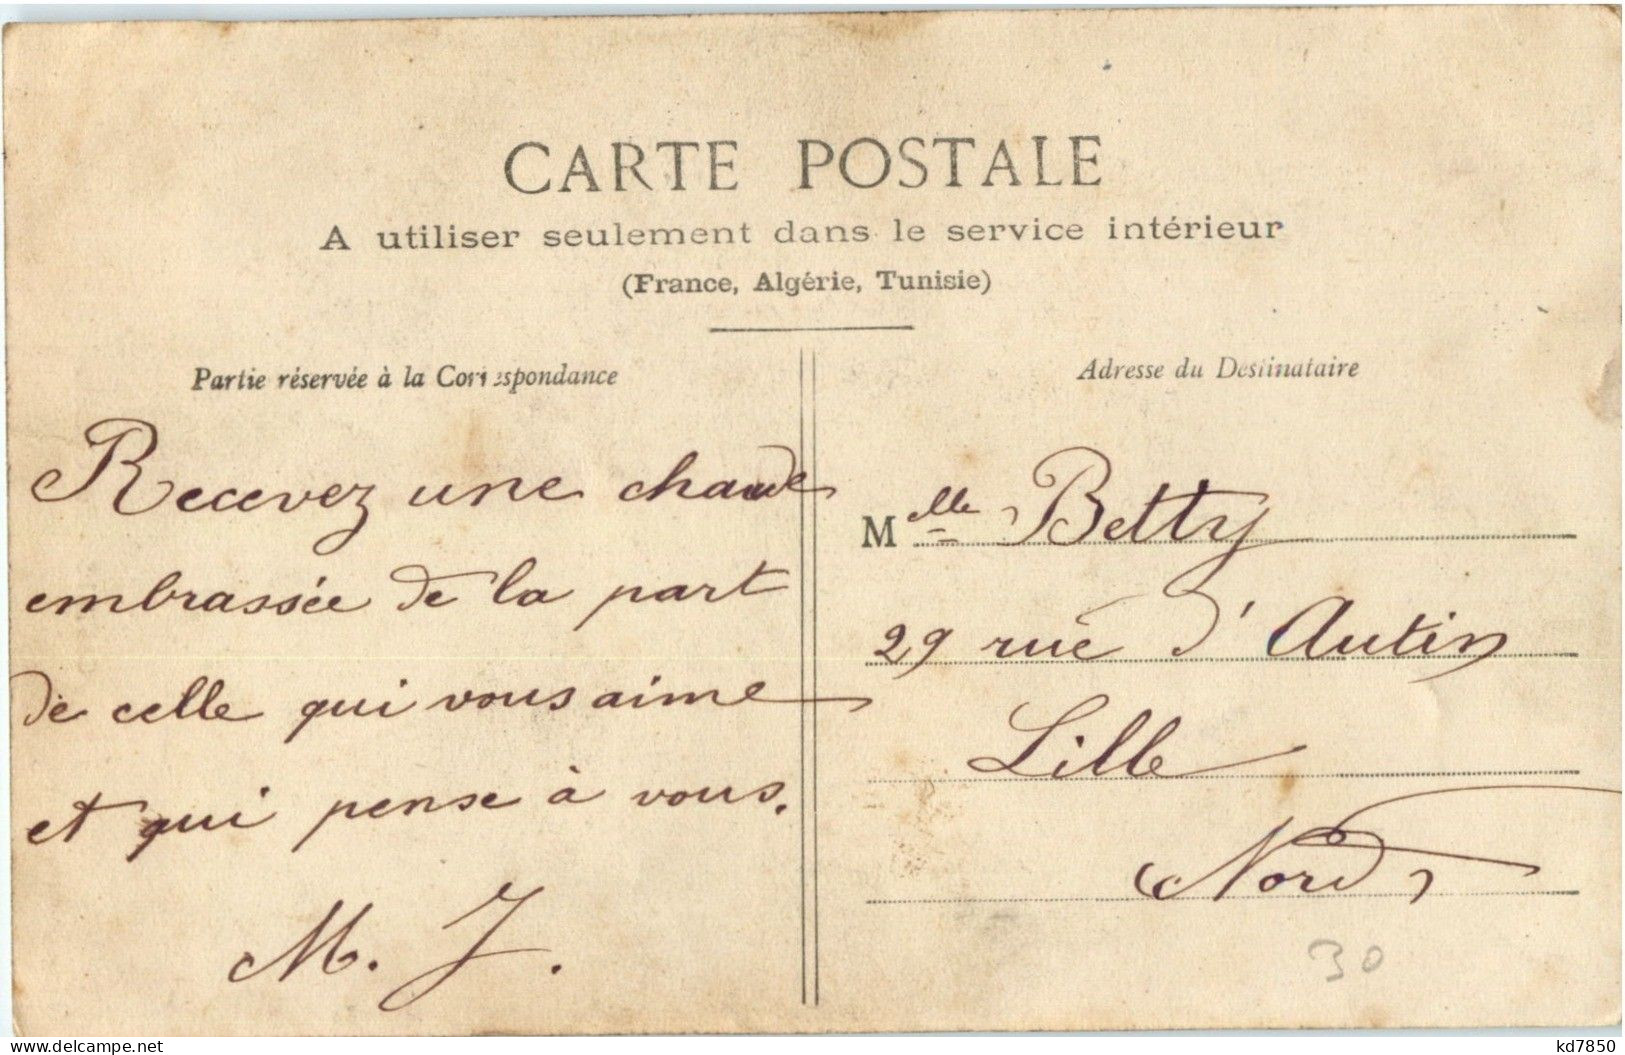 CARTE POSTALE
A utiliser seulement dans le service intérieur
(France, Algérie, Tunisie)
Partie réservée à la Correspondance
Recevez une chaude
embrassée de la part
de celle qui vous aime
et qui pense à vous.
M. J.
Adresse du Destinataire
Melle Betty
29 rue d'Antin
Lille
(Nord)
30
delcampe.net
kd7850